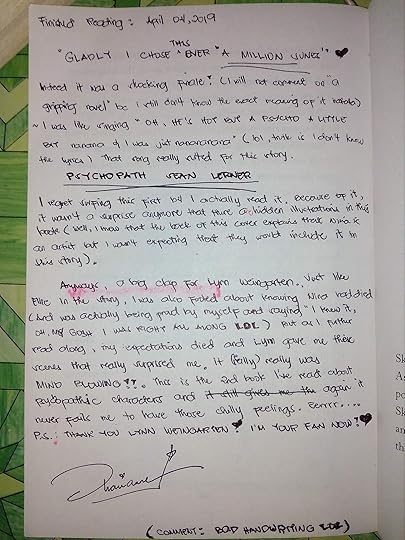 Finished Reading : April 04, 2019
THIS
"GLADLY I CHOSE OVER "A MILLION JUNES"
Indeed it was a shocking finale! (I will not comment on "a
gripping novel" bc I still don't know the exact meaning of it hahaha)
~ I was like singing " OH, HE'S HOT BUT A PSYCHO A LITTLE
BIT nanana & I was just nanananana" (lol, truth is I don't know
the lyrics) That song really suited for this story.
PSYCHOPATH SEAN LERNER
I regret skipping this first b4 I actually read it, because of it,
it wasn't a surprise anymore that there are hidden illustrations in this
book (well, I know that the back of this cover explains that Nina is
an artist but I wasn't expecting that they would include it in
this story).
Anyways, a big clap for Lynn Weingarten. Just like
Ellie in the story, I was also fooled about knowing Nina had died
(and was actually being proud by myself and saying "I knew it,
OH, MY GOSH I WAS RIGHT ALL ALONG LOL) But as I further
read along, my expectations died and Lynn gave me those
scenes that really surprised me. It (really) really was
MIND BLOWING!!. This is the 2nd book I've read about
psychopathic characters and it still gives me the again it
never fails me to have those chilly feelings. Brrrrr....
P.S.: THANK YOU LYNN WEINGARTEN! I'M YOUR FAN NOW!
(COMMENT: BAD HANDWRITING LOL)